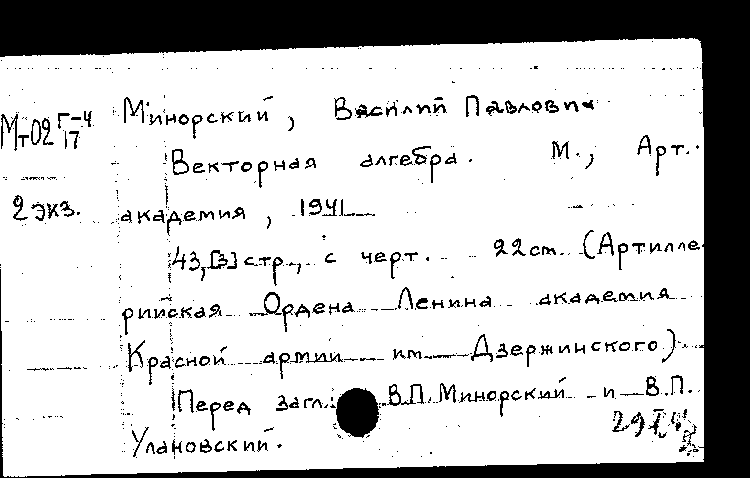 Минорский, Василий Павлович
Мт02 Г-4
17
Векторная алгебра. М., Арт.
2 экз.
академия, 1941
43,[3] стр., с черт. 22 cm. (Артилле-
рийская Ордена Ленина академия
Красной армии им Дзержинского)
Перед загл.: В.П. Минорский и В.П.
Улановский.